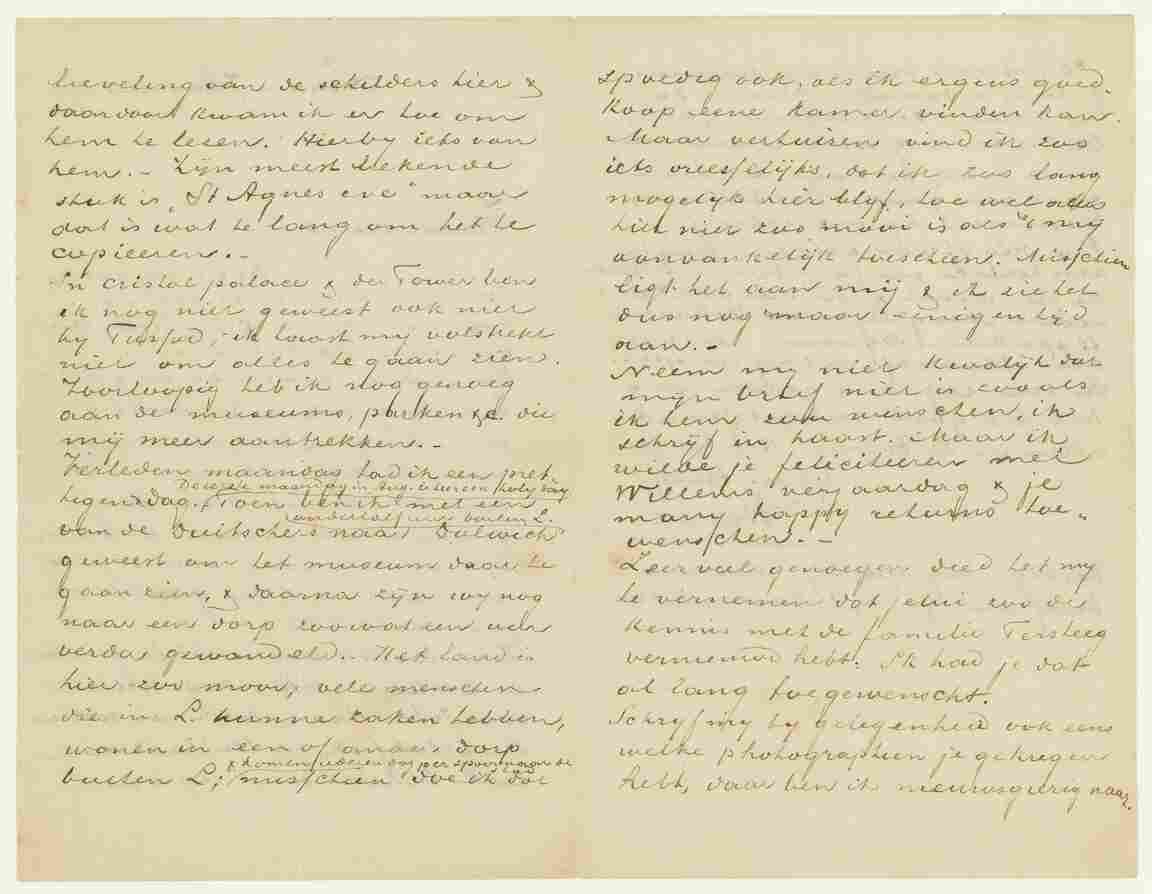 lieveling van de schilders hier &
daardoor kwam ik er toe om
hem te lezen. Hierby iets van
hem. – Zijn meest bekende
stuk is „St Agnes eve” maar
dat is wat te lang om het te
copieeren. –
In cristal palace & de Tower ben
ik nog niet geweest ook niet
by Tussaud; ik haast my volstrekt
niet om alles te gaan zien.
Voorloopig heb ik nog genoeg
aan de museums, parken &c. die
mij meer aantrekken. –
Verleden maandag had ik een pret
De eerste maandag in Aug. is hier een holy day
tigen dag. Toen ben ik met een
anderhalf uur buiten L.
van de Duitschers naar Dulwich
geweest om het museum daar te
gaan zien, & daarna zijn wy nog
naar een dorp zoowat een uur
verder gewandeld. Het land is
hier zoo mooi; vele menschen
die in L. hunne zaken hebben,
wonen in een of ander dorp
& komen iederen dag per spoor naar de
buiten L; misschien doe ik dat
spoedig ook, als ik ergens goed-
koop eene kamer vinden kan.
Maar verhuizen vind ik zoo
iets vreesselijks, dat ik zoo lang
mogelijk hier blyf, hoe wel alles
hier niet zoo mooi is als 't my
aanvankelijk toescheen. Misschien
ligt het aan mij & ik zie het
dus nog maar eenigen tijd
aan. –
Neem my niet kwalijk dat
mijn brief niet is zooals
ik hem zou wenschen, ik
schrijf in haast. Maar ik
wilde je feliciteren met
Willems verjaardag & je
many happy returns toe-
wenschen. –
Zeer veel genoegen deed het my
te vernemen dat jelui zoo de
kennis met de familie Tersteeg
vernieuwd hebt. Ik had je dat
al lang toegewenscht.
Schryf my by gelegenheid ook eens
welke photographien je gekregen
hebt, daar ben ik nieuwsgierig naar.